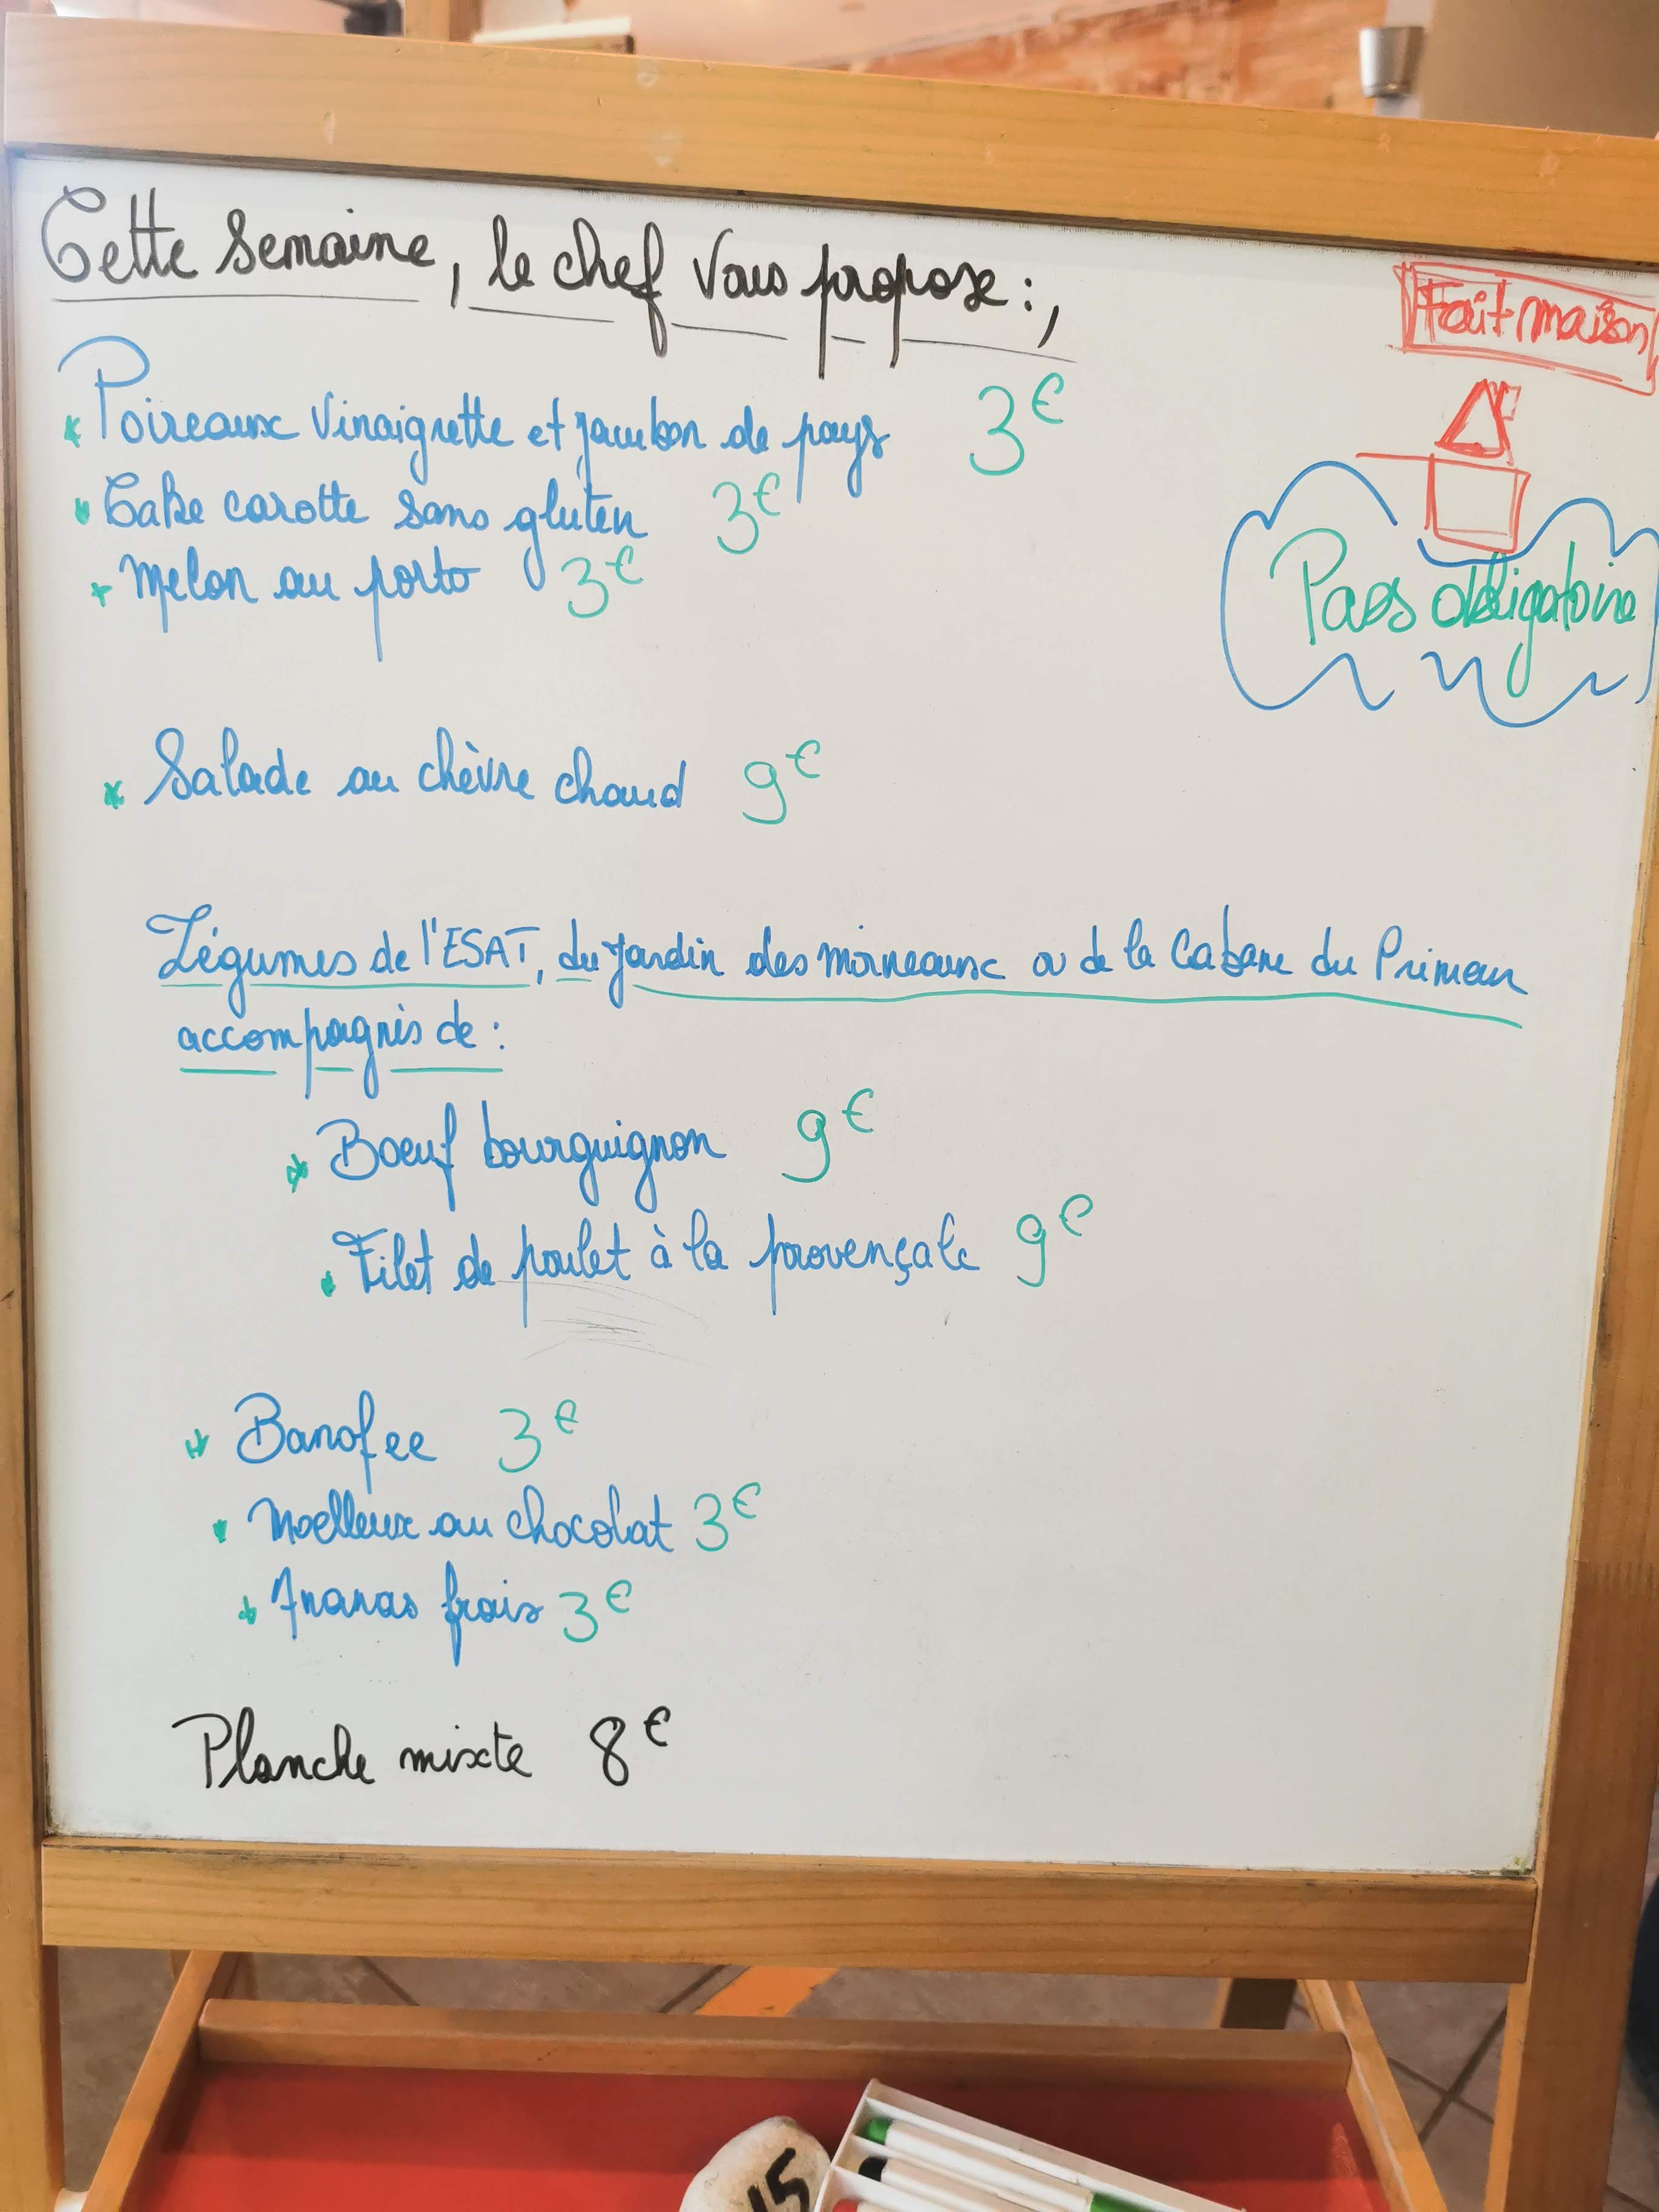 Cette semaine, le chef vous propose :,
Fait maison
* Poireaux vinaigrette et jambon de pays 3€
* Cake carotte sans gluten 3€
* Melon au porto 3€
Pass obligatoire
* Salade au chèvre chaud 9€
Légumes de l'ESAT, du jardin des moineaux ou de la Cabane du Primeur
accompagnés de :
* Boeuf bourguignon 9€
* Filet de poulet à la provençale 9€
* Banofee 3€
* Moelleux au chocolat 3€
* Ananas frais 3€
Planche mixte 8€
15